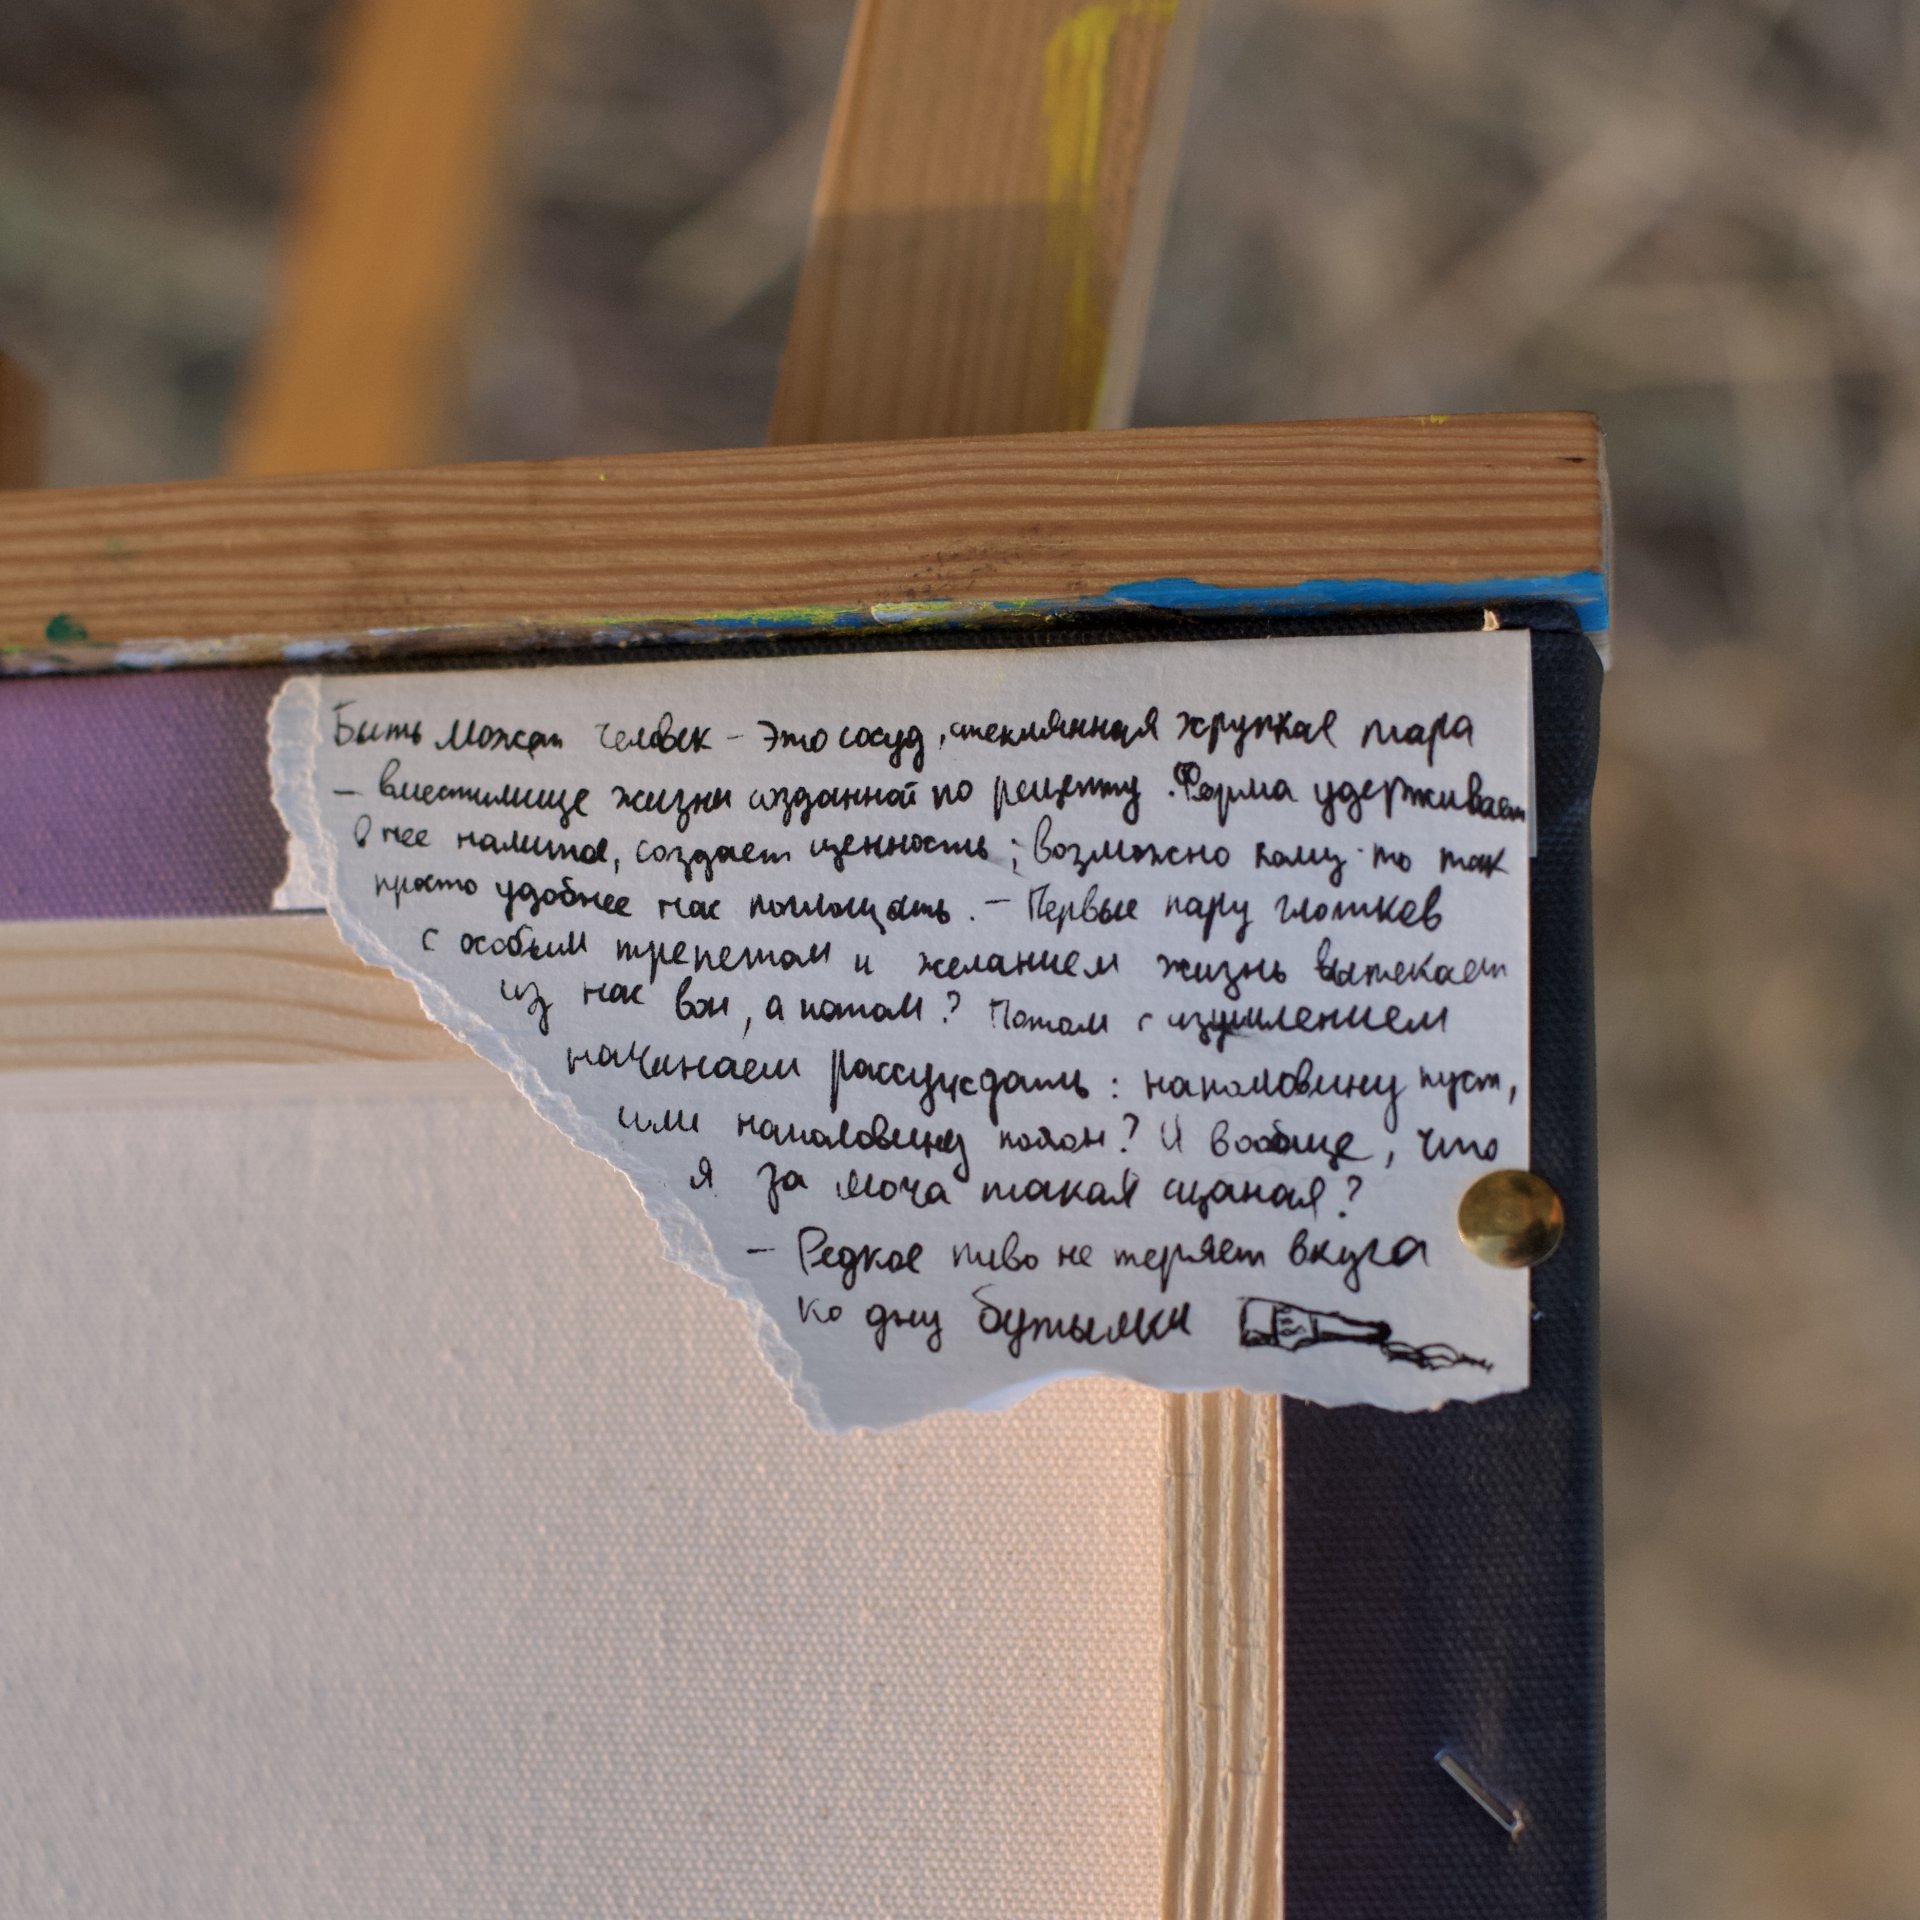 Быть может человек - это сосуд, стеклянная хрупкая тара
- вместилище жизни созданной по рецепту. Форма удерживает
в нее налитое, создает ценность; возможно кому-то так
просто удобнее нас поглощать. - Первые пару глотков
с особым трепетом и желанием жизнь вытекает
из нас вон, а потом? Потом с изумлением
начинаем рассуждать: наполовину пуст,
или наполовину полон? И вообще, что
я за моча такая сцаная?
- Редкое пиво не теряет вкуса
ко дну бутылки